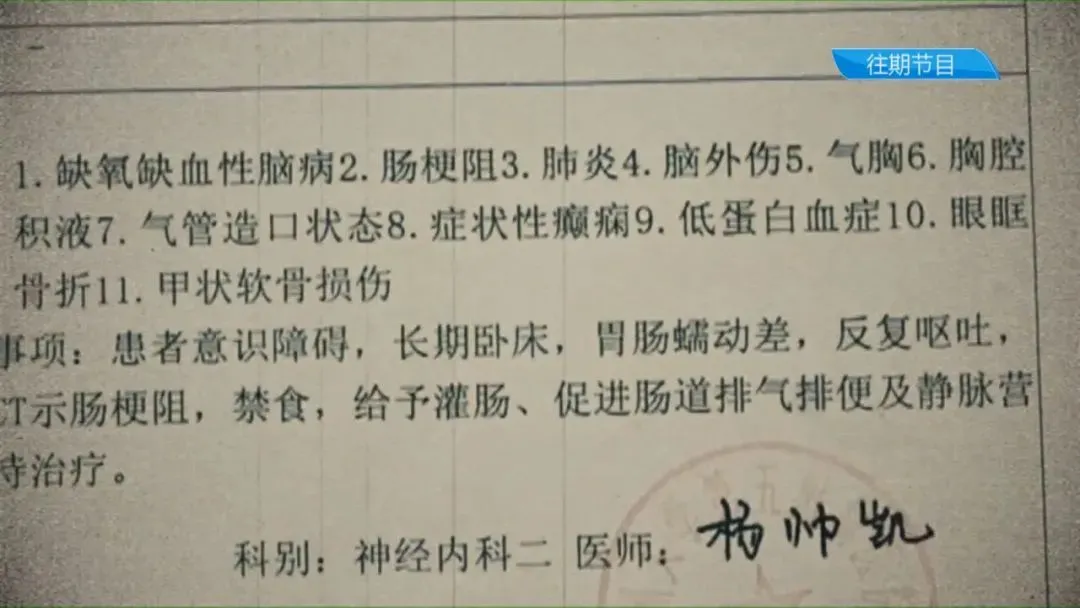 往期节目
1. 缺氧缺血性脑病2. 肠梗阻3. 肺炎4. 脑外伤5. 气胸6. 胸腔
积液7. 气管造口状态8. 症状性癫痫9. 低蛋白血症10. 眼眶
骨折11. 甲状软骨损伤
事项：患者意识障碍，长期卧床，胃肠蠕动差，反复呕吐，
CT示肠梗阻，禁食，给予灌肠、促进肠道排气排便及静脉营
持治疗。
科别：神经内科二 医师：杨帅凯
五